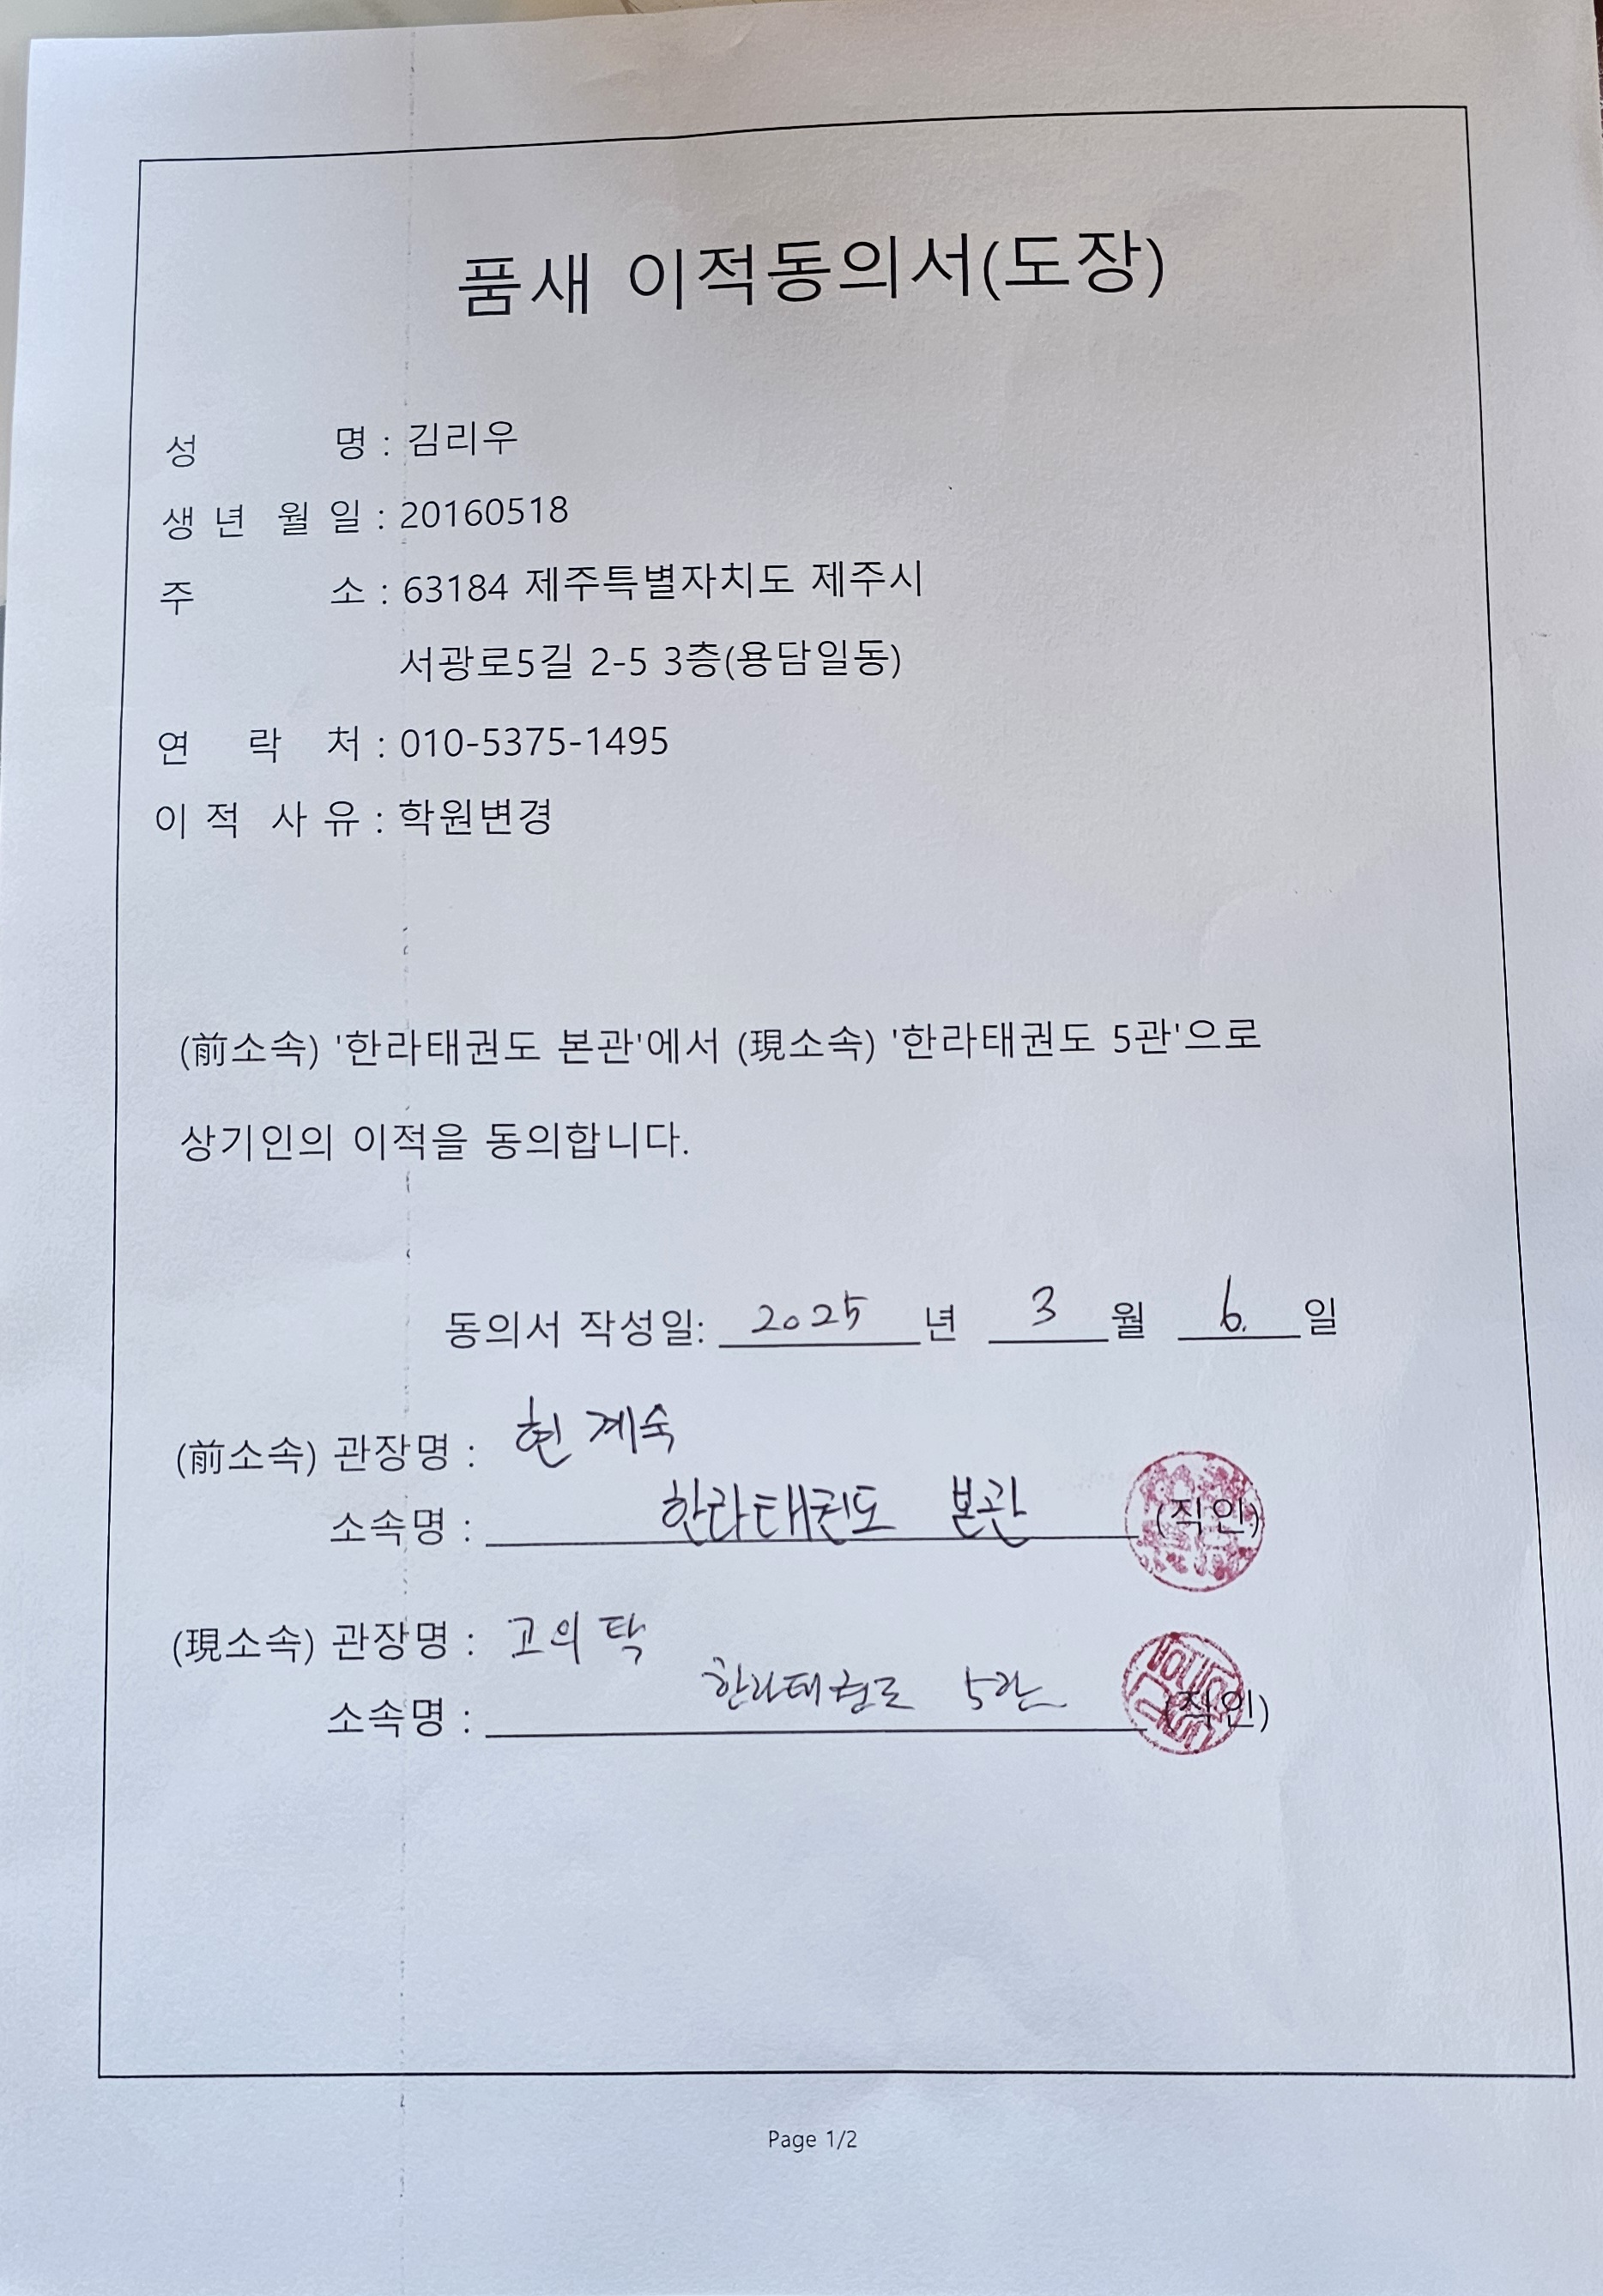 품새 이적동의서(도장)
성 명 : 김리우
생 년 월 일 : 20160518
주 소 : 63184 제주특별자치도 제주시
서광로5길 2-5 3층(용담일동)
연 락 처 : 010-5375-1495
이 적 사 유 : 학원변경
(前소속) '한라태권도 본관'에서 (現소속) '한라태권도 5관'으로
상기인의 이적을 동의합니다.
동의서 작성일: 2025 년 3 월 6. 일
(前소속) 관장명 : 현계숙
소속명 : 한라태권도 본관 (직인)
(現소속) 관장명 : 고의탁
소속명 : 한라태권도 5관 (직인)
Page 1/2